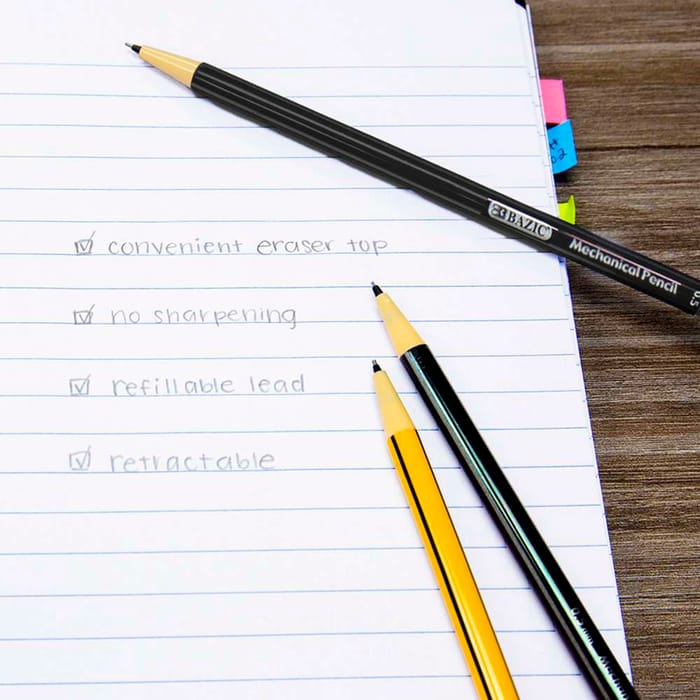 BAZIC
Mechanical Pencil 0.5
☑ convenient eraser top
☑ no sharpening
☑ refillable lead
☑ retractable
0.5 mm